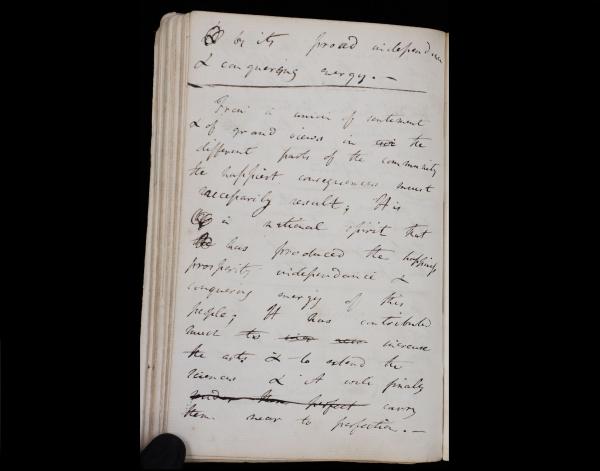 by its proud independence
& conquering energy. —
From a union of sentiment
& of grand views in the
different parts of the community
the happiest consequences must
necessarily result; It is
in national spirit that
has produced the
prosperity independance &
conquering energy of this
people; It has contributed
much to increase
the arts & to extend the
sciences & it will finally
render them perfect carry
them near to perfection. —